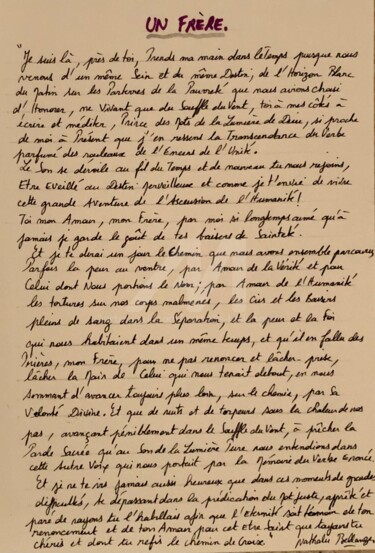 UN FRÈRE.
"Je suis là, près de toi, Prends ma main dans le Temps puisque nous
venons d'un même Sein et du même Destin; de l'Horizon Blanc
du Matin sur les Parterres de la Pauvreté que nous avions choisi
d'Honorer, ne Vivant que du Souffle du Vent, toi à mes côtés à
écrire et méditer, Prince des Mots de la Lumière de Dieu, si proche
de moi à Présent que j'en ressens la Transcendance du Verbe
parfumé des rouleaux de l'Encens de l'Unité.
Le Son se dévoile au fil du Temps et de nouveau tu nous rejoins,
Etre Eveillé au destin Merveilleux et comme je t'envie de vivre
cette grande Aventure de l'Ascension de l'Humanité!
Toi mon Amour, mon Frère, par moi si longtemps aimé qu'à
jamais je garde le goût de tes baisers de Sainteté.
Et je te dirai un jour le Chemin que nous avons ensemble parcouru,
Parfois la peur au ventre, par Amour de la Vérité et pour
Celui dont Nous portions le Nom; par Amour de l'Humanité
les tortures sur nos corps malmenés, les Cris et les
pleins de sang dans la Séparation, et la peur et la Foi
qui nous habitaient dans un même temps, et qu'il en fallu des
Prières, mon Frère, pour ne pas renoncer et lâcher prise,
lâcher la Main de Celui qui nous tenait debout, en nous
sommant d'avancer toujours plus loin, sur le chemin, par Sa
Volonté Divine. Et que de nuits et de torpeurs sous la chaleur de nos
pas, avançant péniblement dans le Souffle du Vent, à prêcher la
Parole Sacrée qu'au Son de la Lumière nous entendions dans
cette autre Voix qui nous portait par la Mémoire du Verbe
Et je ne vis jamais aussi heureux que dans ces moments de grandes
difficultés, te dépassant dans la prédication du Mot Juste, apprêté et
paré de rayons tu t'habillais afin que l'Eternité soit de ton
renoncement et de ton Amour pour cet être Saint que toujours tu
chéris et dont tu refis le chemin de Croix" Nathalie Bellanger